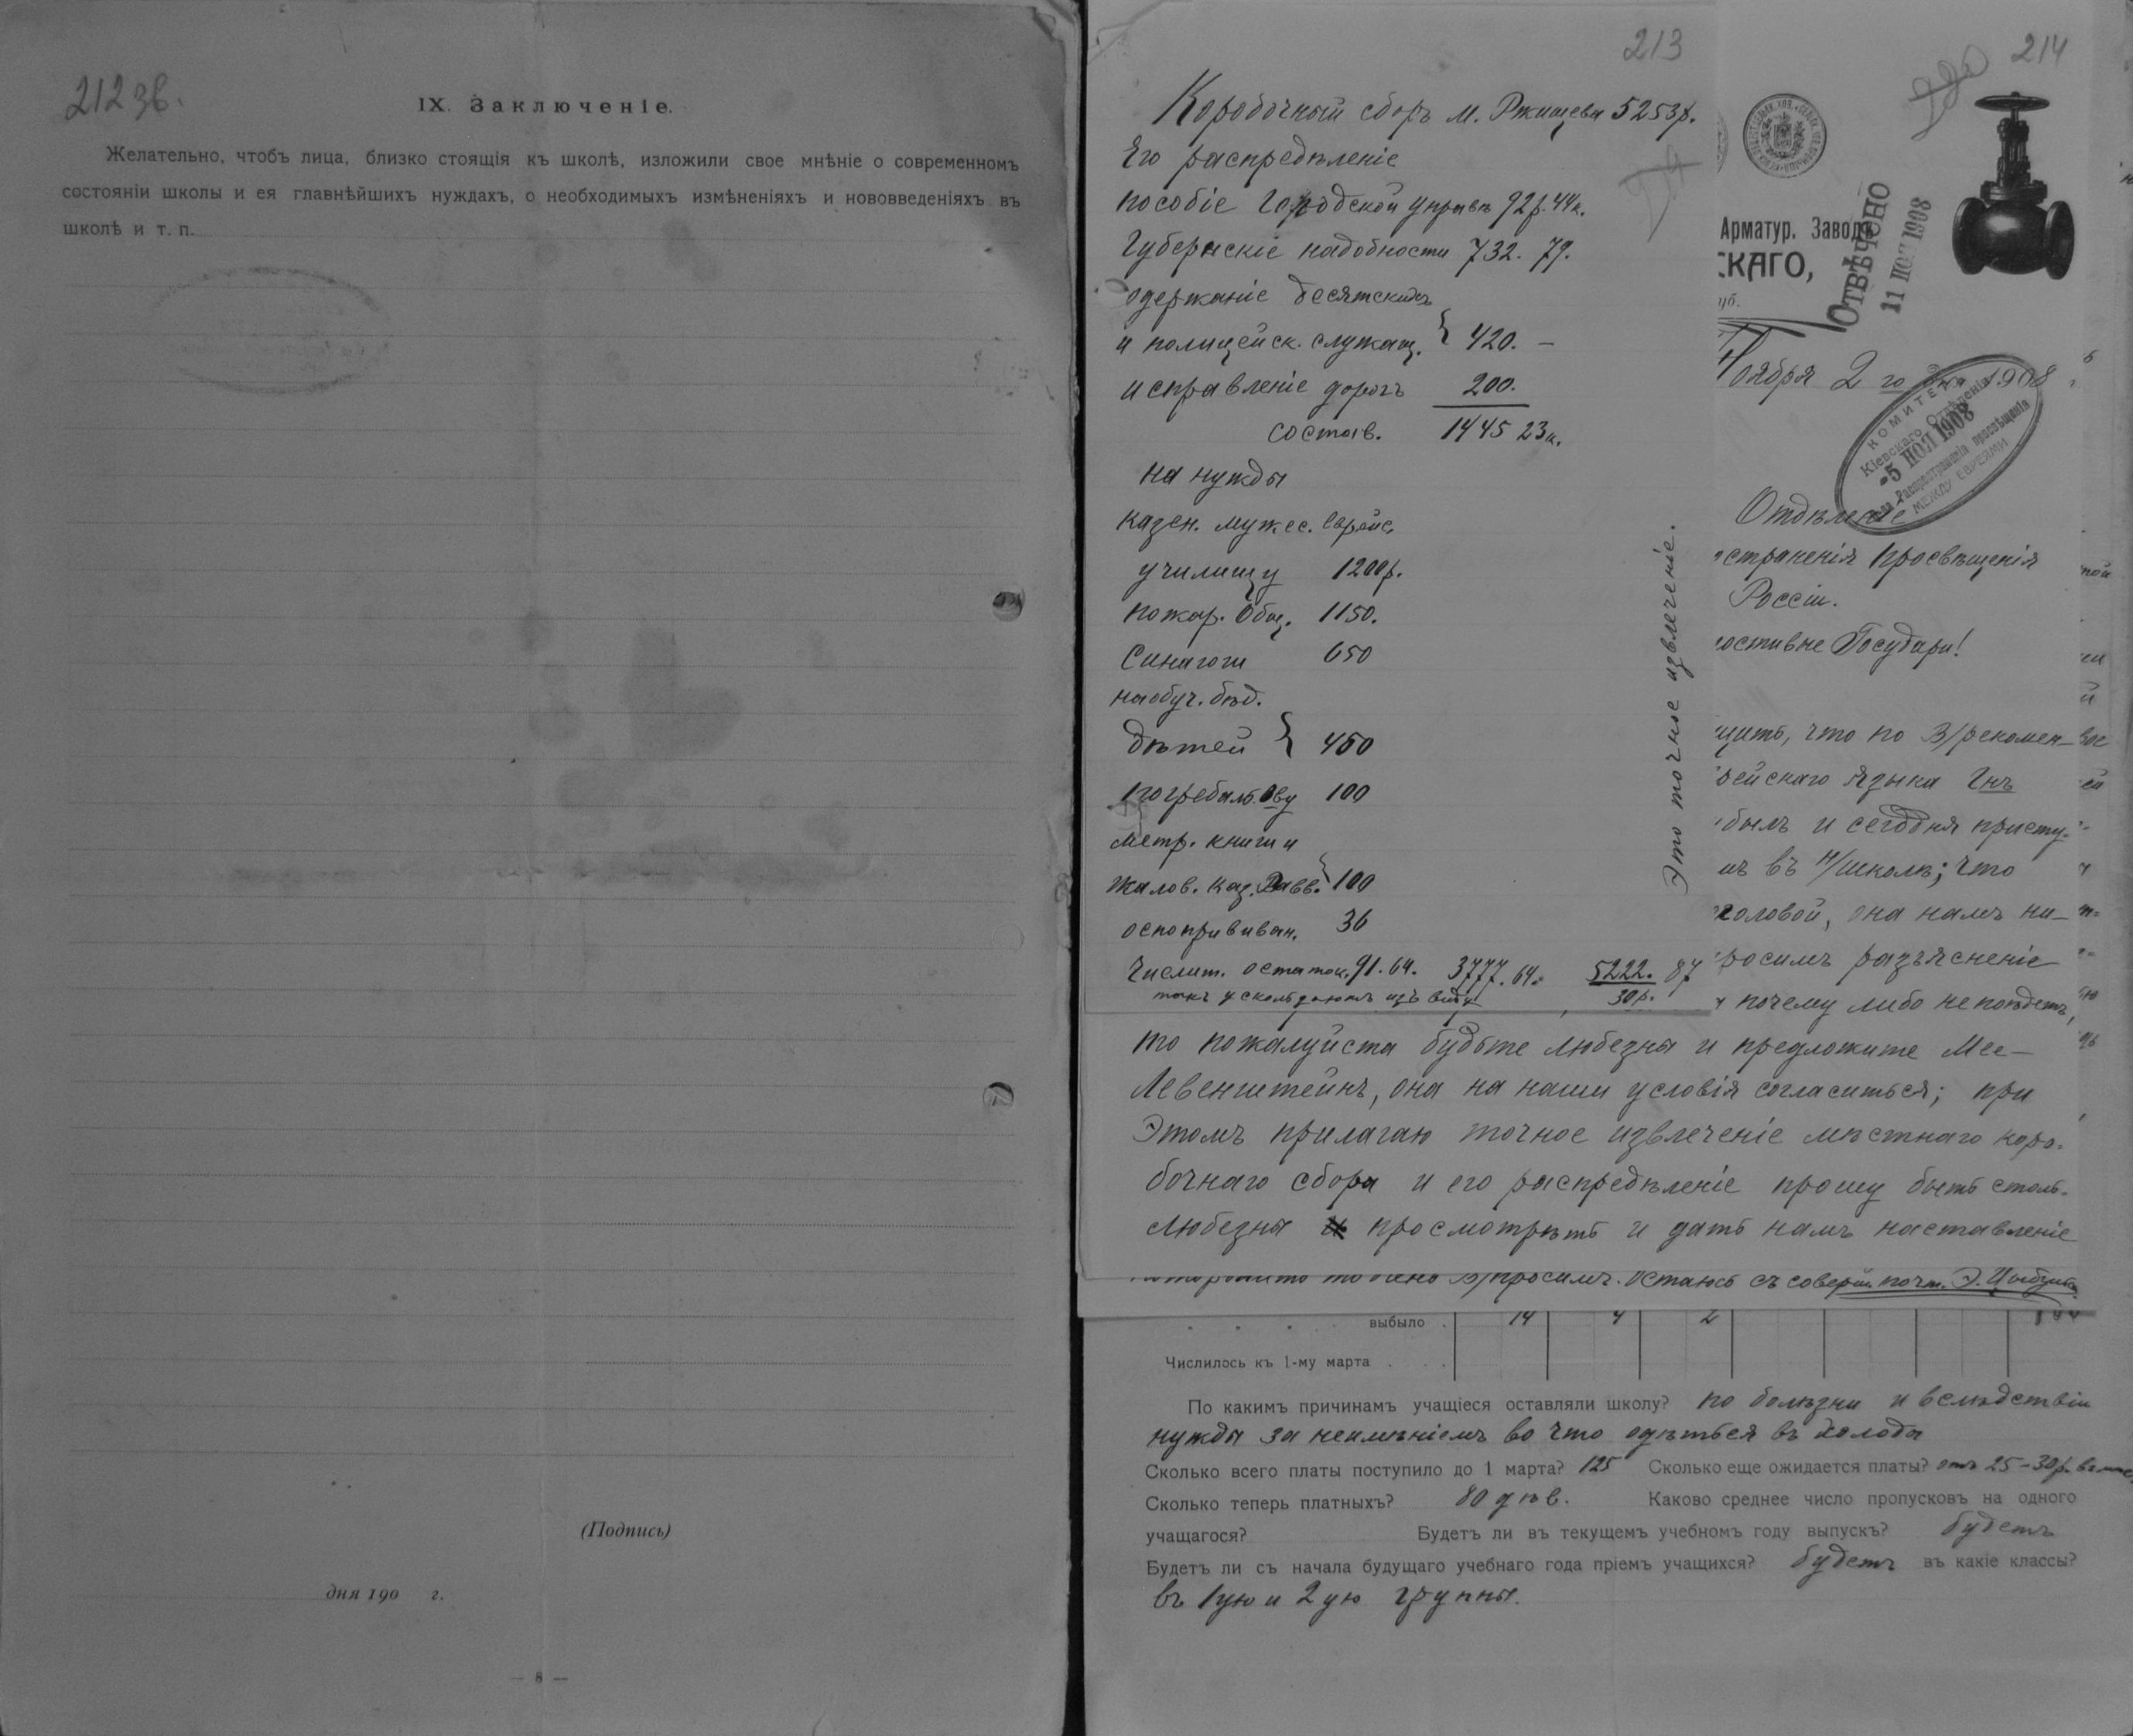 212 зв.
IX. Заключеніе.
Желательно, чтобъ лица, близко стоящія къ школѣ, изложили свое мнѣніе о современномъ
состояніи школы и ея главнѣйшихъ нуждахъ, о необходимыхъ измѣненіяхъ и нововведеніяхъ въ
школѣ и т. п.
(Подпись)
дня 190 г.
— 8 —
213
Коробочный сборъ м. Ржищева 5253р.
Его распредѣленіе
пособіе Городской управѣ 92р.44к.
Губернскіе надобности 732. 79.
одержаніе десятскихъ
и полицейск. служащ. } 420. —
исправленіе дорогъ 200.
состав. 1445 23к.
на нужды
казен. мужес. Еврейс.
училищу 1200р.
пожар. Общ. 1150.
Синагоги 650
на обуч. бѣд.
дѣтей } 450
погребальб. Ову 100
метр. книги и
жалов. каз. Равв. } 100
оспопрививан. 36
Числит. остаток. 91.64. 3777.64. 5222. 87
30р.
Это точное извлеченіе.
214
Арматур. Заводъ
СКАГО,
уб.
ОТВѢЧЕНО
11 НОЯ 1908
Ноября 2 го дня 1908
КОМИТЕТЪ
Кіевскаго Отдѣленія
-5 НОЯ 1908
Распространенія просвѣщенія
МЕЖДУ ЕВРЕЯМИ
Отдѣленіе
остраненія Просвѣщенія
Россіи.
остивые Государи!
щить, что по В/рекомен-
ейскаго языка Гнъ
былъ и сегодня присту-
въ Н/школѣ; что
головой, она намъ ни-
росимъ разъясненіе
почему либо не поѣдетъ,
то пожалуйста будьте любезны и предложите Мее-
Левенштейнъ, она на наши условія согласиться; при
Этомъ прилагаю точное извлеченіе мѣстнаго коро-
бочнаго сбора и его распредѣленіе прошу быть столь-
любезны просмотрѣть и дать намъ наставленіе
просимъ. Остаюсь съ соверш. почт.
выбыло . 14 4 2
Числилось къ 1-му марта . . .
По какимъ причинамъ учащіеся оставляли школу? по болѣзни и вслѣдствіи
нужды за неимѣніемъ во что одѣться въ холода
Сколько всего платы поступило до 1 марта? 125 Сколько еще ожидается платы? отъ 25-30р. въ
Сколько теперь платныхъ? 80 дѣв. Каково среднее число пропусковъ на одного
учащагося? Будетъ ли въ текущемъ учебномъ году выпускъ? будетъ
Будетъ ли съ начала будущаго учебнаго года пріемъ учащихся? будетъ въ какіе классы?
въ 1ую и 2ую группы.